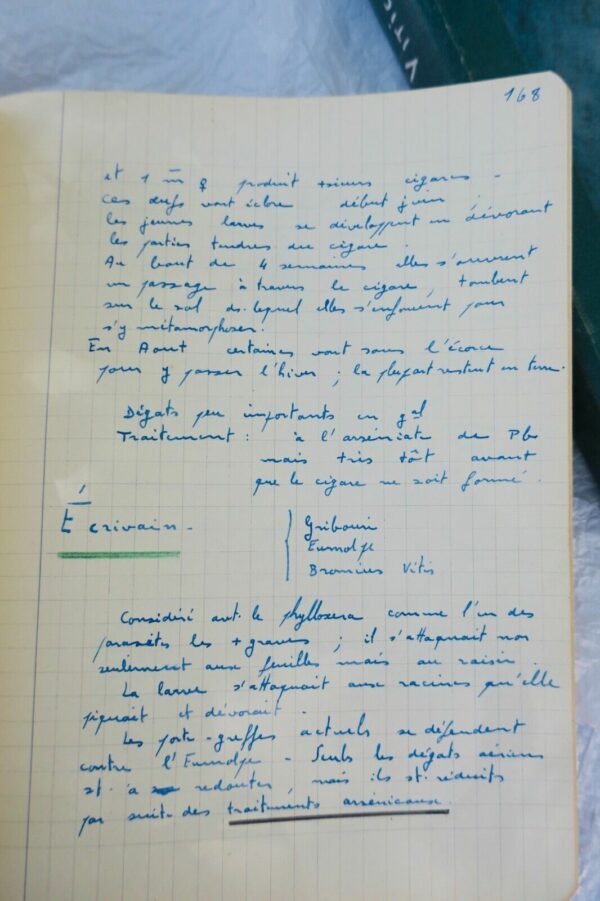 VITIC
168
et 1 m ♀ produit +sieurs cigares -
Ces œufs vont éclore début juin.
les jeunes larves se développent en dévorant
les parties tendres du cigare.
Au bout de 4 semaines elles s'ouvrent
un passage à travers le cigare, tombent
sur le sol ds. lequel elles s'enfoncent pour
s'y métamorphoser.
En Aout certaines vont sous l'écorce
pour y passer l'hiver ; la plupart restent en terre.
Dégâts peu importants en gal
Traitement : à l'arséniate de Pb
mais très tôt avant
que le cigare ne soit formé.
Ecrivain -
Gribouri
Eumolpe
Bromius Vitis
Considéré avt. le phylloxera comme l'un des
parasites les + graves ; il s'attaquait non
seulement aux feuilles mais au raisin.
La larve s'attaquait aux racines qu'elle
piquait et dévorait.
Les porte-greffes actuels se défendent
contre l'Eumolpe - Seuls les dégâts aériens
st. à redouter, mais ils st. réduits
par suite des traitements arsénicaux.